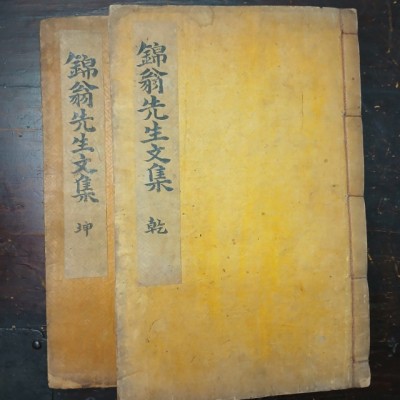 錦翁先生文集
乾
錦翁先生文集
坤